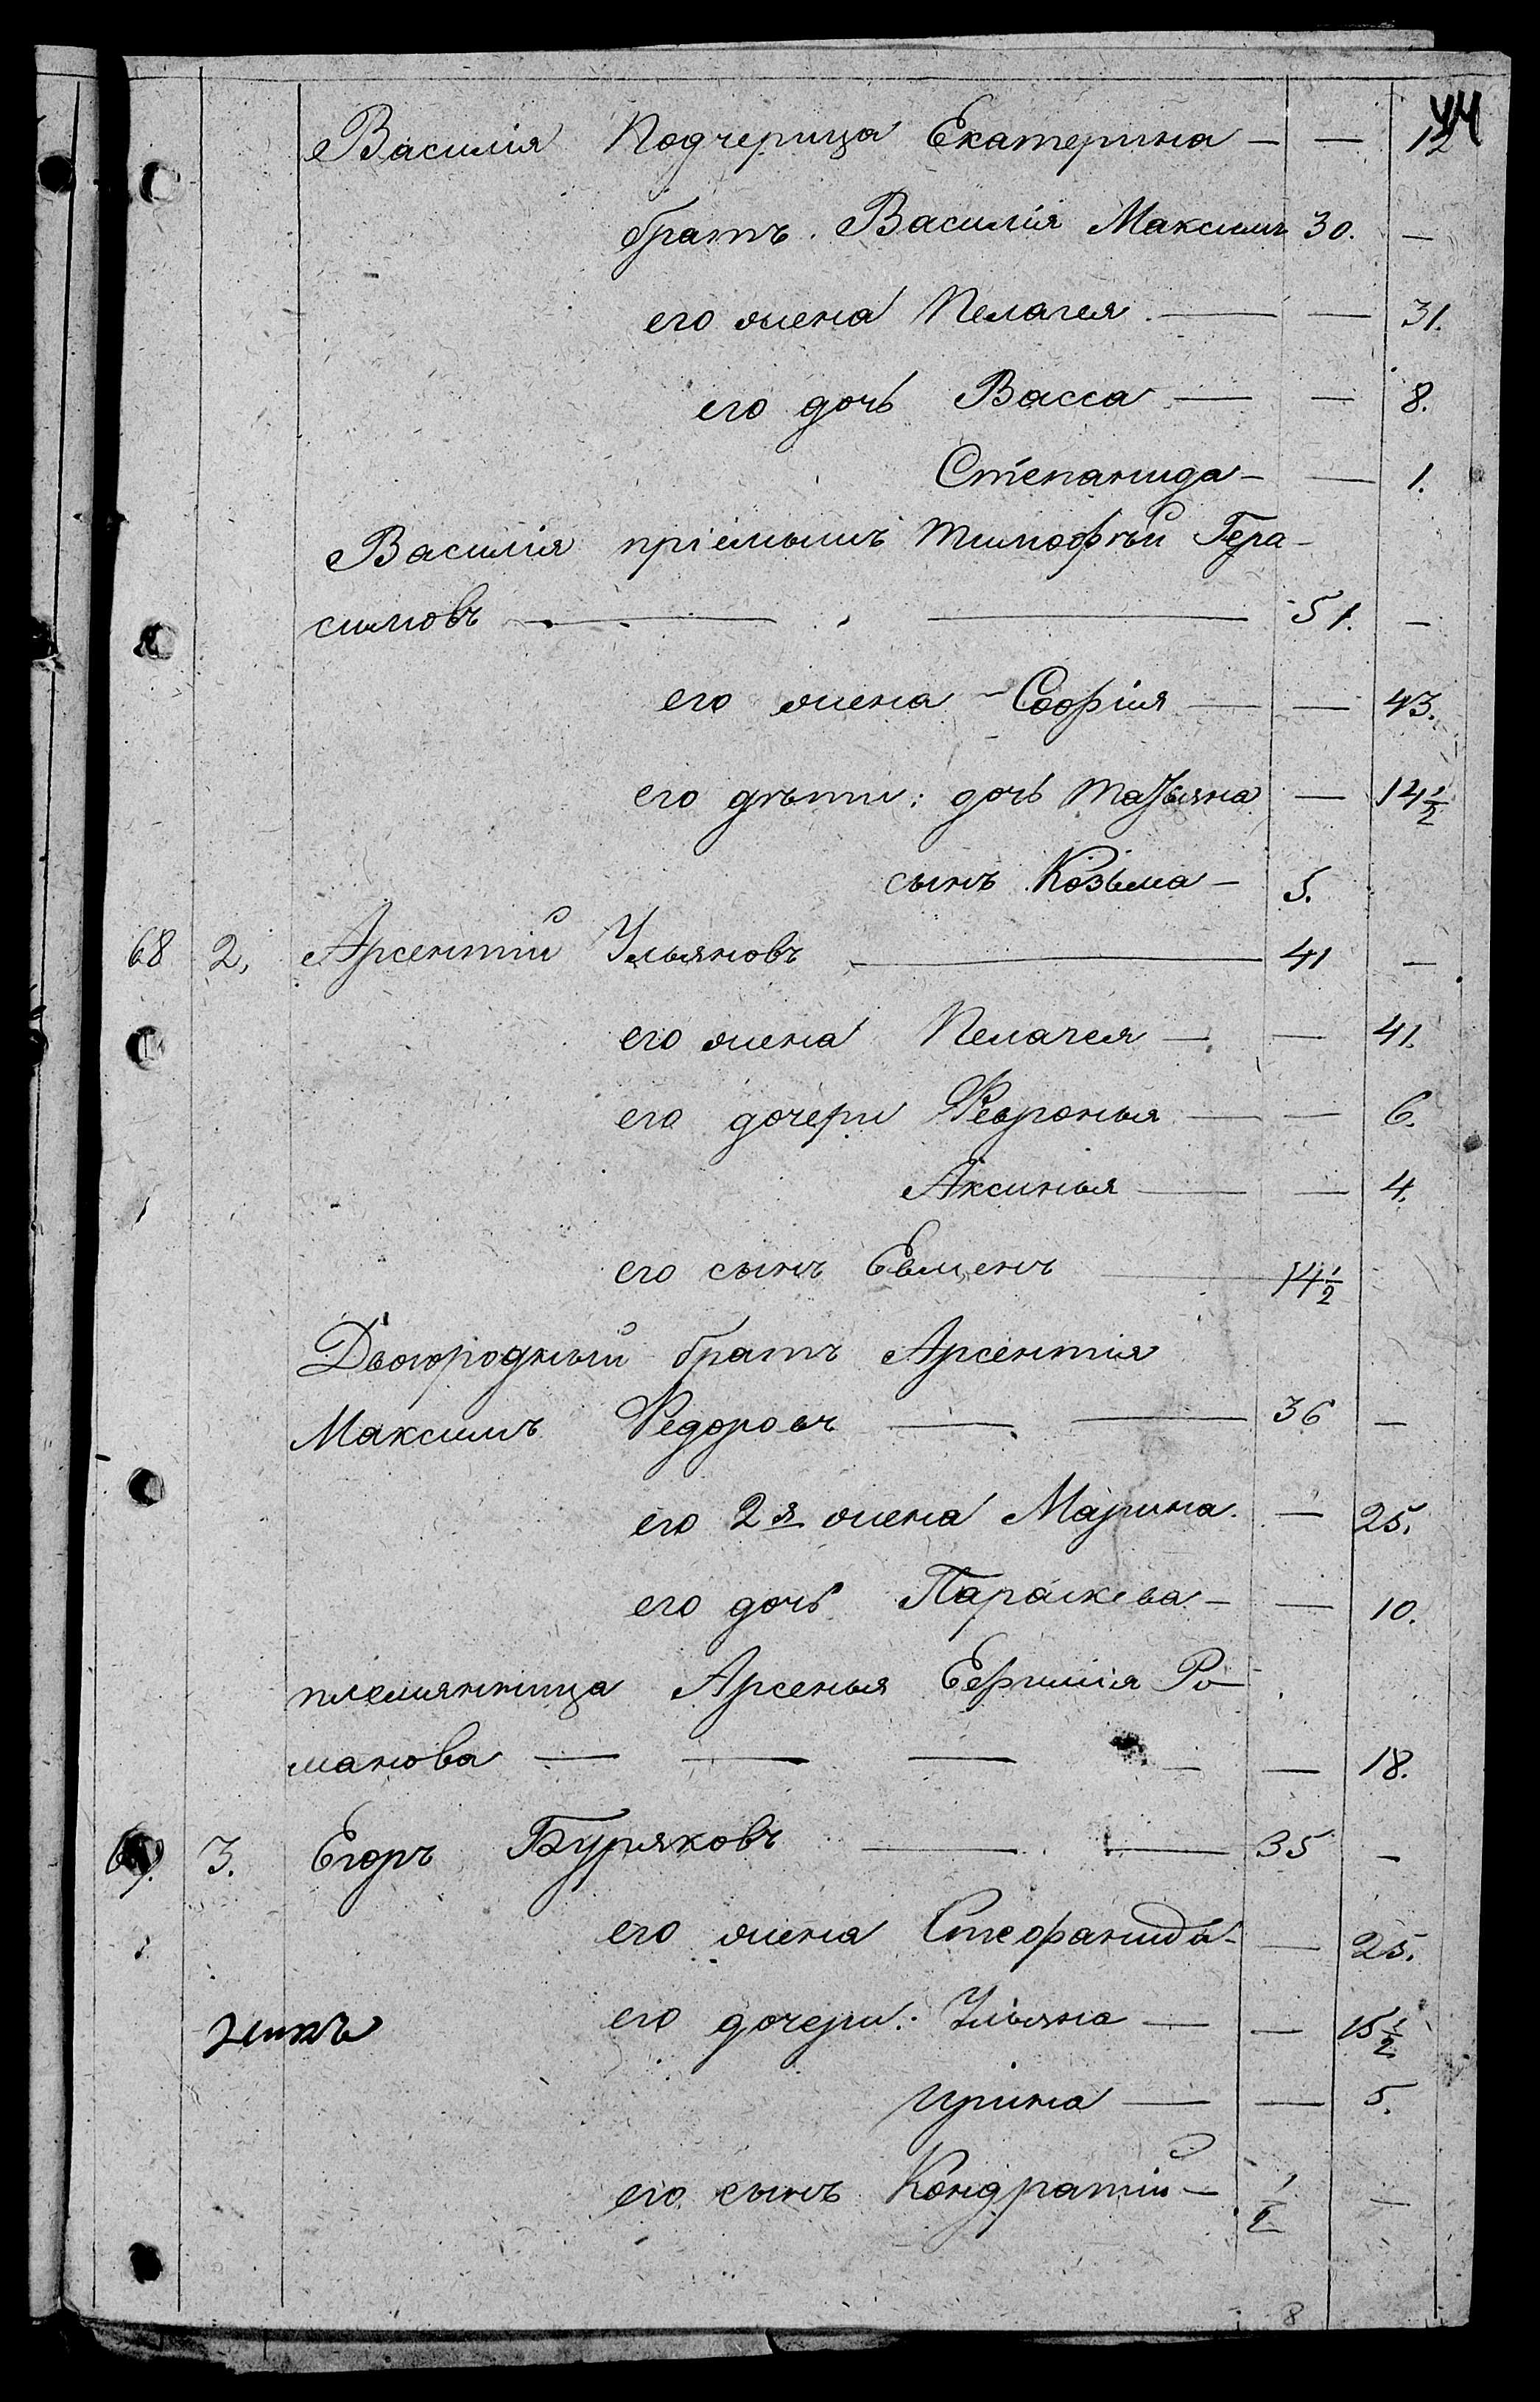 44
Василія Подчерица Екатерина — — 12
братъ Василія Максимъ 30. —
его жена Пелагея — — 31.
его дочь Васса — — 8.
Степанида — — 1.
Василія пріемышъ Тимофѣй Гера-
симовъ — — 51. —
его жена Софія — — 43.
его дѣти: дочь Татьяна — 14 1/2
сынъ Козьма — 5.
68 2. Арсентій Ульяновъ — 41 —
его жена Пелагея — — 41.
его дочери Февронья — — 6.
Аксинья — — 4.
его сынъ Евменъ — 14 1/2
Двоюродный братъ Арсентія
Максимъ Федоровъ — — 36 —
его 2я жена Марина. — 25.
его дочь Параскева — — 10.
племянница Арсенья Ефимія Ро-
манова — — — — — 18.
69. 3. Егоръ Буряковъ — — 35 —
его жена Стефанида — — 25.
его дочери: Ульяна — — 15 1/2
Ирина — — 5.
его сынъ Кондратій — 1/2 —
8